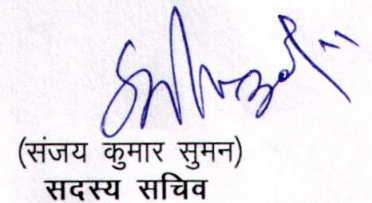 (संजय कुमार सुमन)
सदस्य सचिव